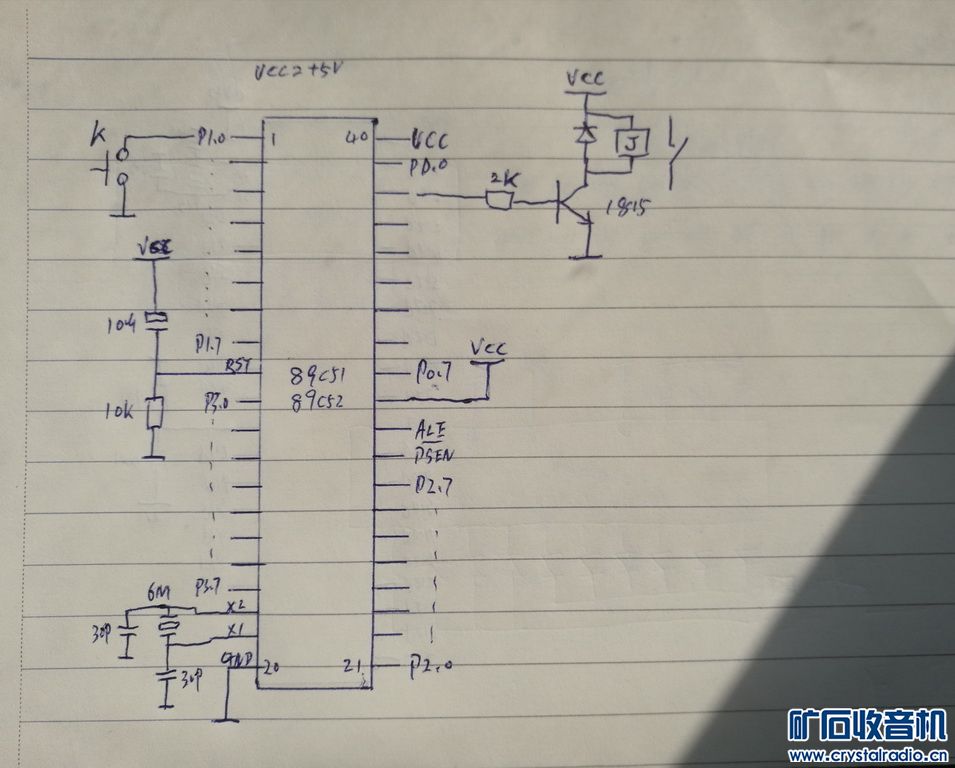 VCC=+5V
VCC
K
P1.0
1
40
VCC
J
P0.0
2K
1815
VCC
10u
P1.7
RST
89C51
P0.7
VCC
10K
P3.0
89C52
ALE
PSEN
P2.7
6M
P3.7
X2
30P
X1
GND
20
21
P2.0
30P
矿石收音机
www.crystalradio.cn